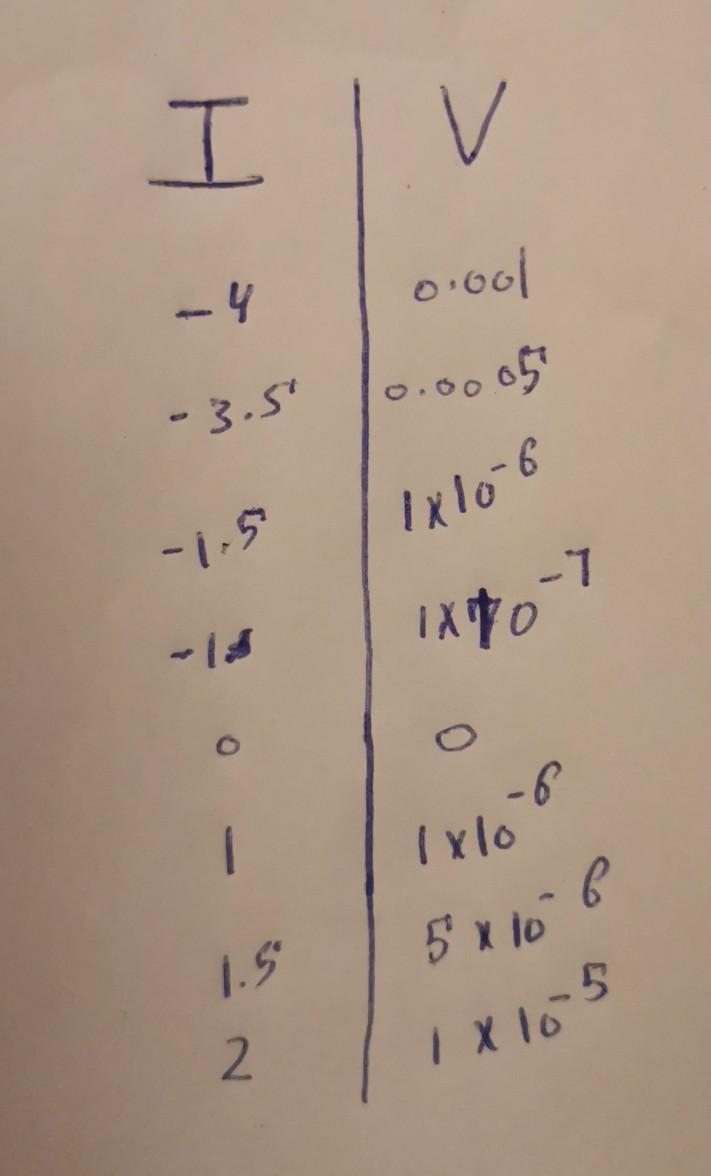 I V
-4 0.001
-3.5 0.0005
-1.5 1x10⁻⁶
-1 1x10⁻⁷
0 0
1 1x10⁻⁶
1.5 5x10⁻⁶
2 1x10⁻⁵